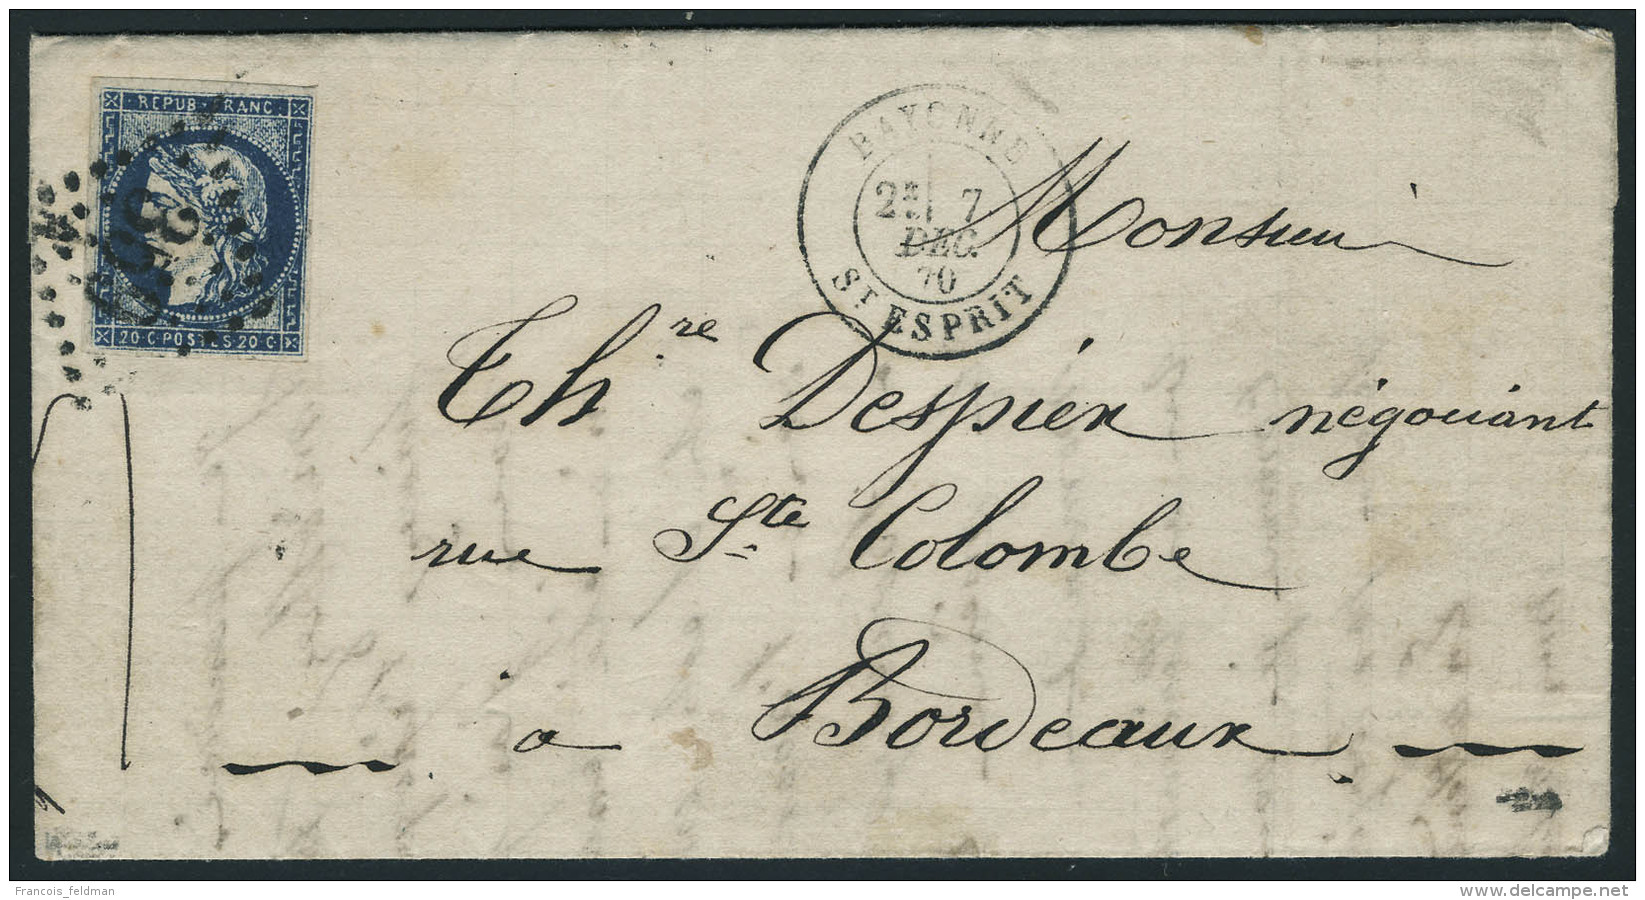 REPUB FRANC
20·C·POSTES 20 C
BAYONNE
2E 7
DEC.
70
ST ESPRIT
Monsieur
Thre Despier négociant
rue Ste Colombe
a Bordeaux
Francois_feldman
www.delcampe.net